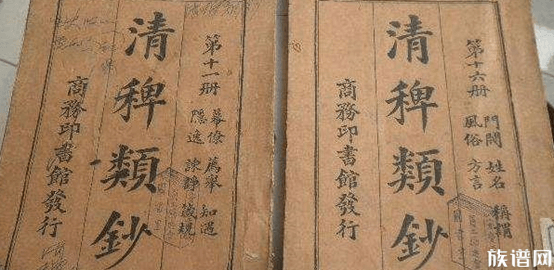 第十一册
幕僚 薦舉 知遇
隱逸 諫諍 箴規
清稗類鈔
商務印書館發行
第十六册
門閥 姓名 稱謂
風俗 方言
清稗類鈔
商務印書館發行
族谱网